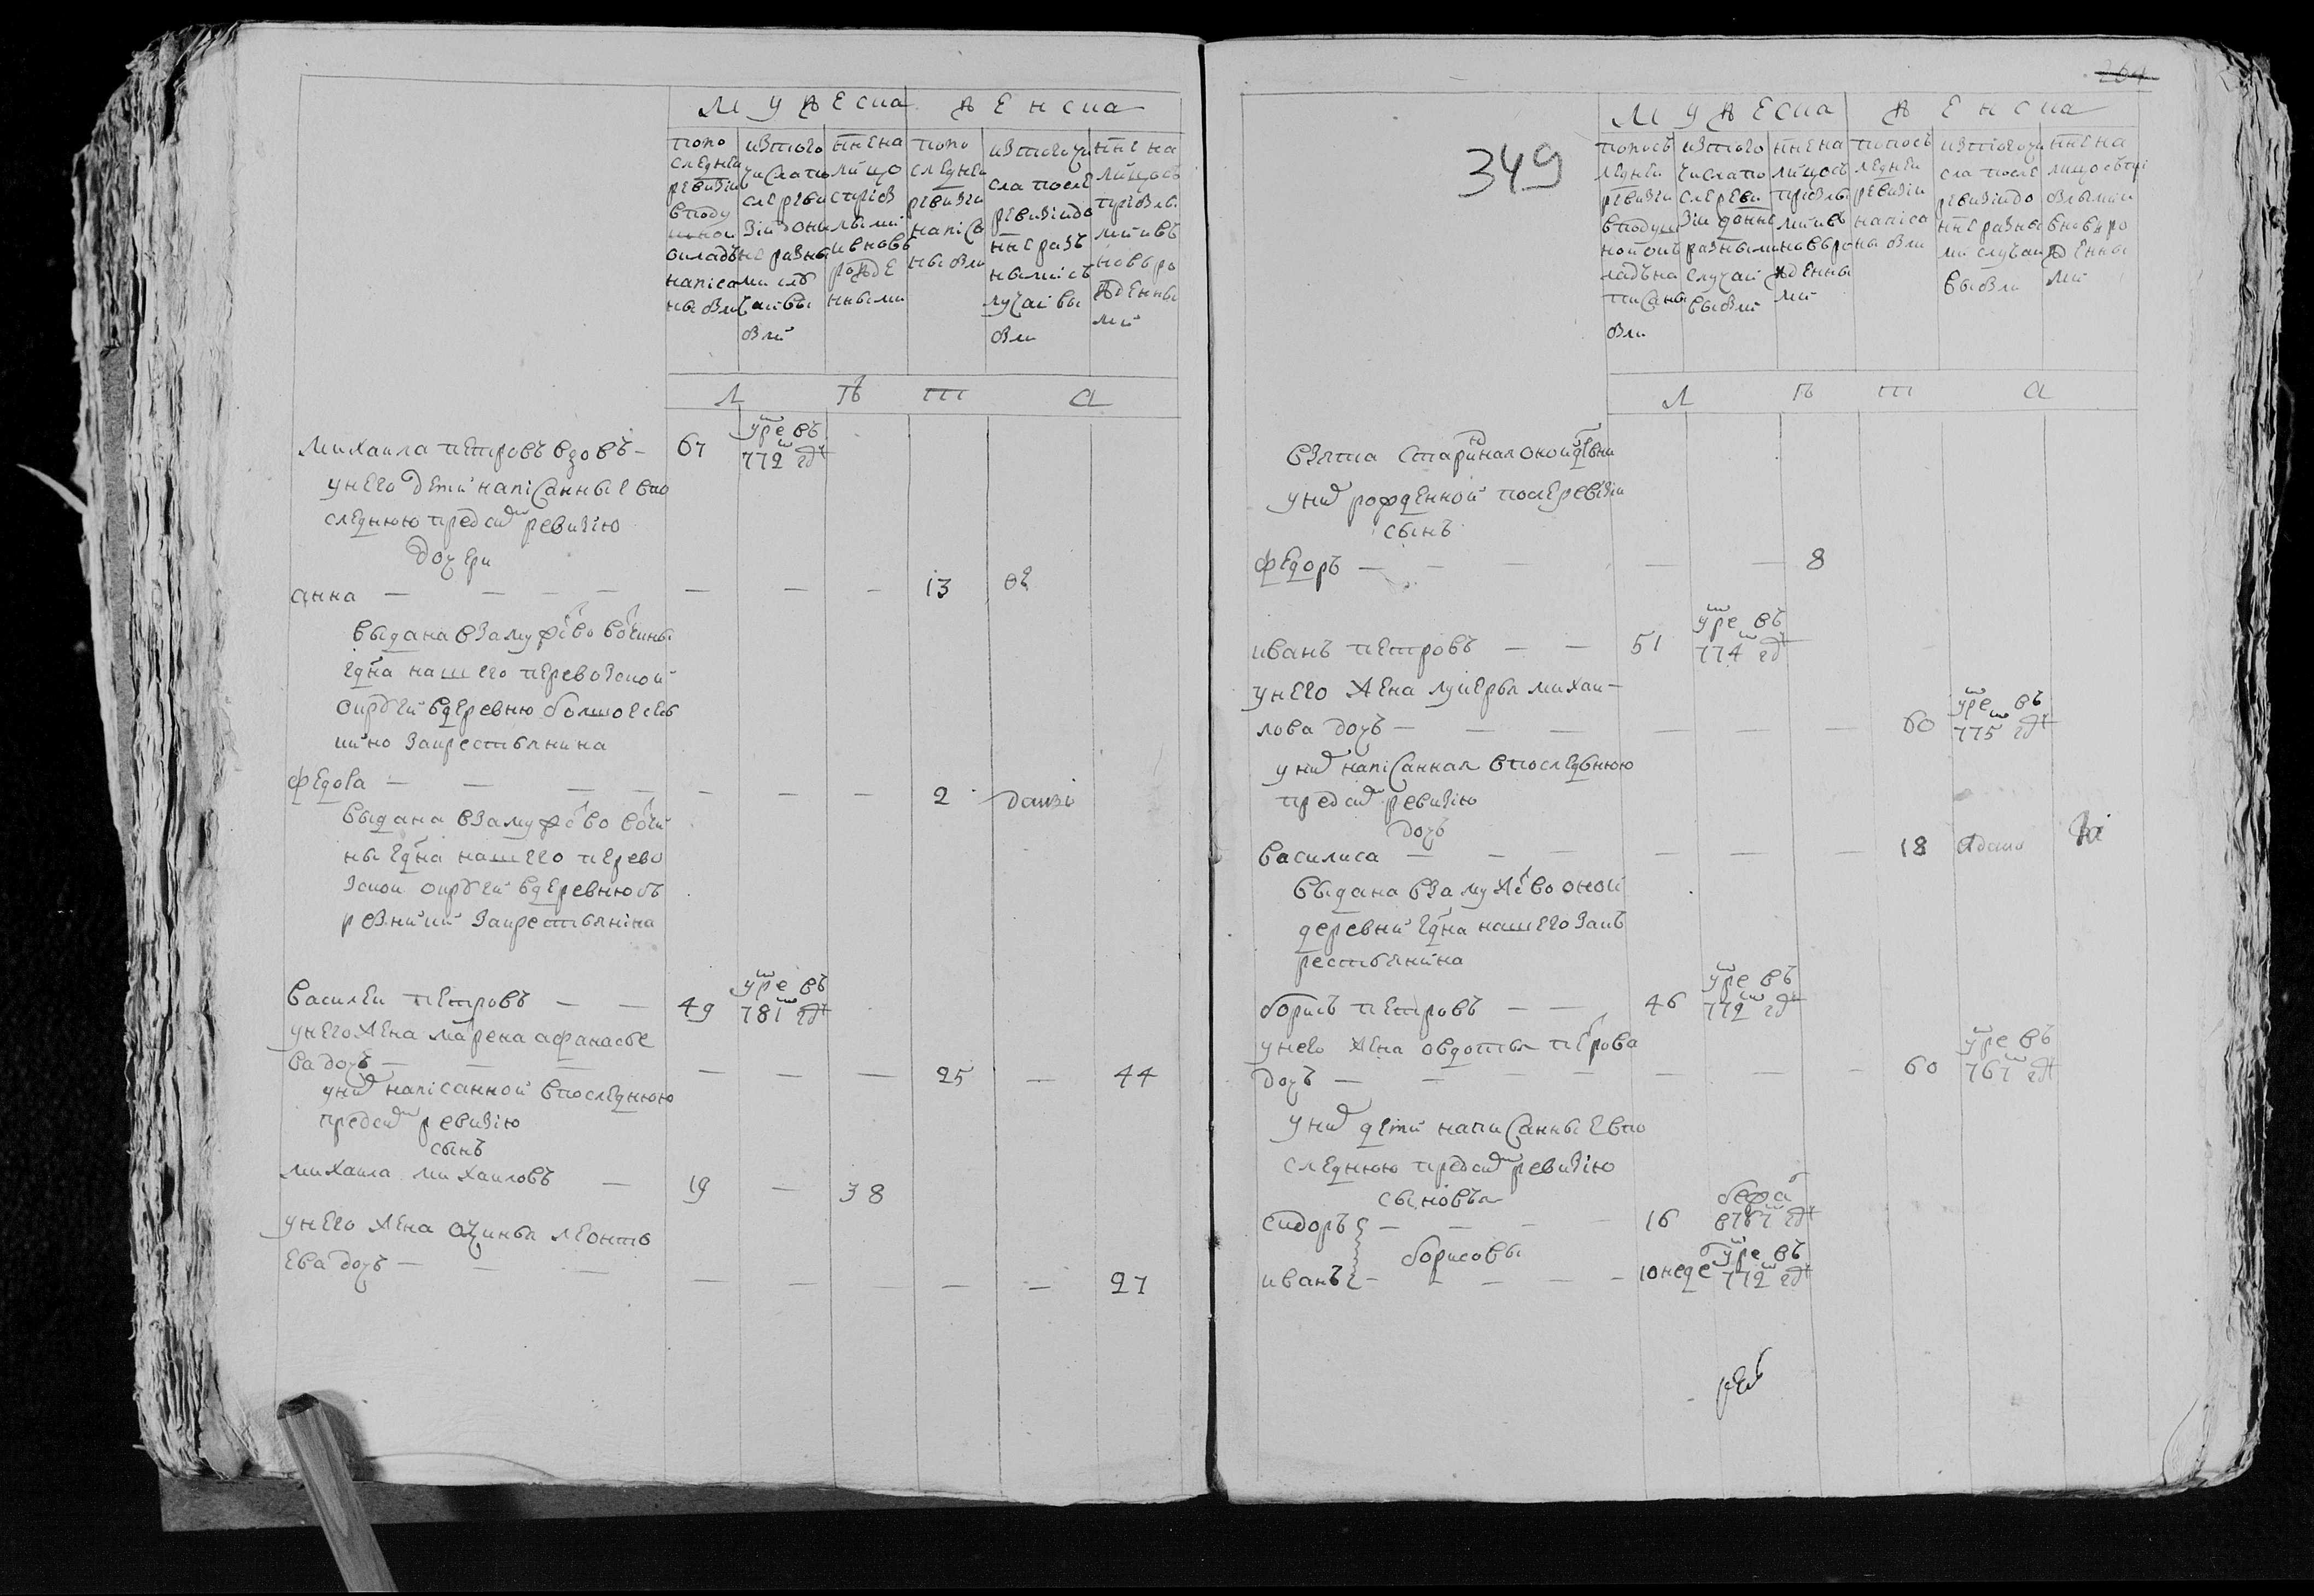 МУЖЕСКА ЖЕНСКА
попо
следней
ревизии
вподу
шной
окладъ
написа
ны были
изтого
числапо
слереви
зіидоны
не разны
ми слу
чаивы
были
ннена
лицо
сприб
лыми
ивновь
рожде
нными
попо
следней
ревизіи
написа
ны были
изтогочи
сла после
ревизіидо
нне разъ
нымисъ
лучаивы
были
нне на
лицосъ
прибылы
миивъ
новь ро
жденны
ми
Л ѣ т а
Михаила петровъ вдовъ — 67 умре въ 772 году
унего дети написанные впо
следнюю предсимъ ревизію
дочери
анна — — — — — — — 13
выдана взамужество вотчины
гдна нашего перевозской
округи вдеревню
закрестьянина
федося — — — — — — 2
выдана взамужество вотчи
ны гдна нашего перево
зской округи вдеревню бѣ
закрестьянина
василей петровъ — — 49 умре въ 781 году
унего жена марена афанасье
ва дочь — — — — — — 25 — 44
унихъ написанной впоследнюю
предсимъ ревизію
сынъ
михаила михаиловъ — 19 — 38
унего жена леонть
ева дочь — — — — — — — — 27
264
349
МУЖЕСКА ЖЕНСКА
попосъ
ледней
ревизіи
вподуш
ной окъ
ладъ на
писаны
были
изтого
числапо
слереви
зіи донне
разными
случаи
выбыли
нне на
лицосъ
прибылы
миивъ
новьро
жденны
ми
попосъ
ледней
ревизіи
написа
ны были
изтогочи
сла после
ревизіидо
нне разны
ми случаи
выбыли
нне на
лицосъпри
былыми
вновь ро
жденны
ми
Л ѣ т а
взята старинная оной девни
унихъ рожденной послеревізіи
сынъ
федоръ — — — — — 8
иванъ петровъ — — 51 умре въ 774 году
унего жена лукерья михаи—
лова дочь — — — — — — 60 умре въ 775 году
унихъ написанная впоследнюю
предсимъ ревизію
дочь
василиса — — — — — — 18
выдана взамужество оной
деревни гдна нашего закъ
рестьянина
борисъ петровъ — — 46 умре въ 772 году
унево жена овдотья петрова
дочь — — — — — — — 60 умре въ 767 году
унихъ дети написанные впо
следнюю предсимъ ревизію
сыновья
сидоръ — — — — 16 бежа в767 году
борисовы
иванъ — — — — 10 неде умре въ 772 году